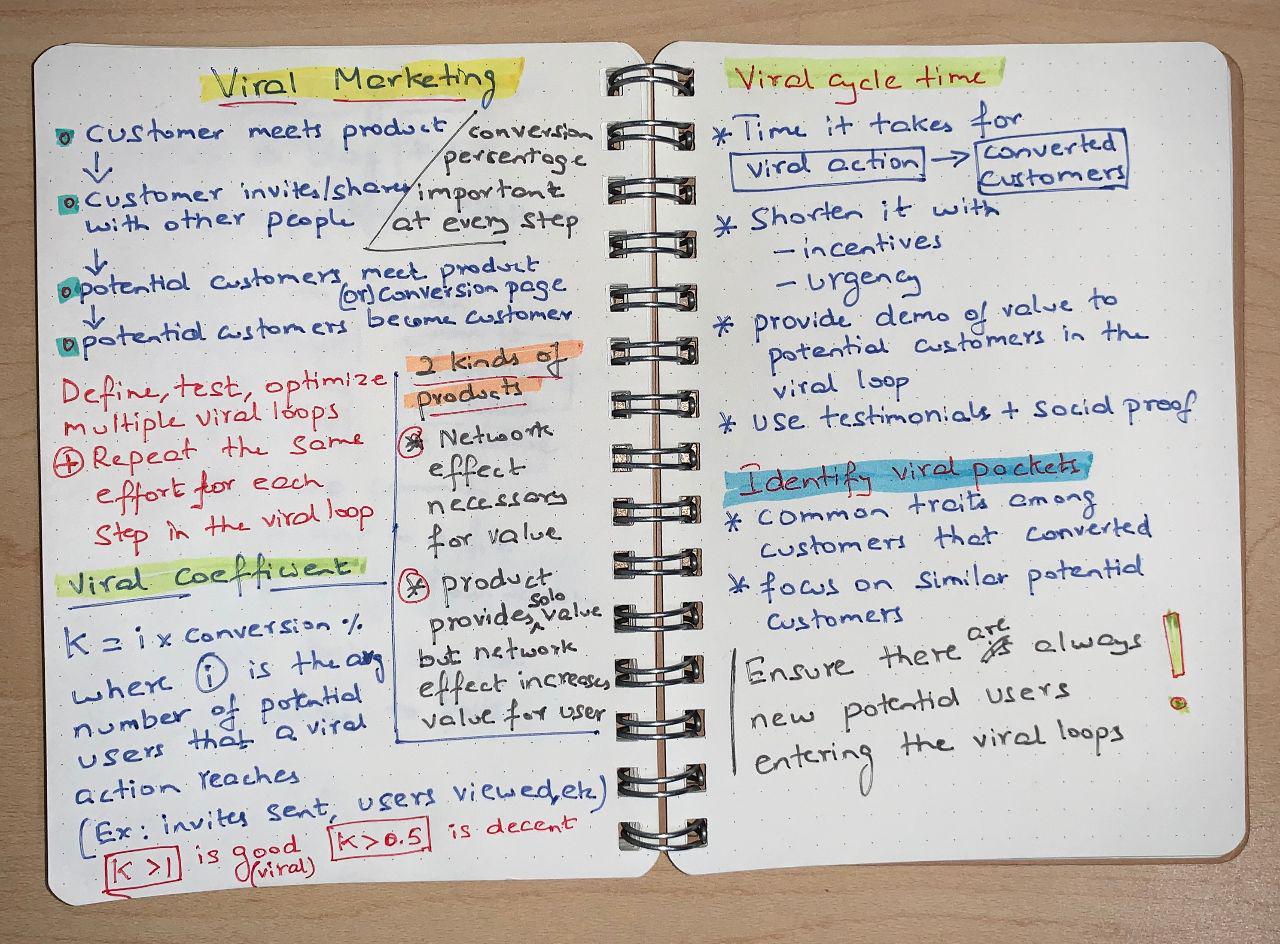 Viral Marketing
Customer meets product
conversion
percentage
important
at every step
↓
Customer invites/shares
with other people
↓
potential customers meet product
(or) conversion page
↓
potential customers become customer
Define, test, optimize
multiple viral loops
+ Repeat the same
effort for each
step in the viral loop
2 kinds of
products
* Network
effect
necessary
for value
* product
provides solo value
but network
effect increases
value for user
Viral Coefficient
K = i x conversion %
where i is the avg
number of potential
users that a viral
action reaches
(Ex: invites sent, users viewed, etc)
K >1 is good
(viral)
K>0.5 is decent
Viral cycle time
* Time it takes for
viral action → converted
customers
* Shorten it with
- incentives
- urgency
* provide demo of value to
potential customers in the
viral loop
* use testimonials + social proof
Identify viral pockets
* common traits among
customers that converted
* focus on similar potential
customers
Ensure there are always
new potential users
entering the viral loops
!